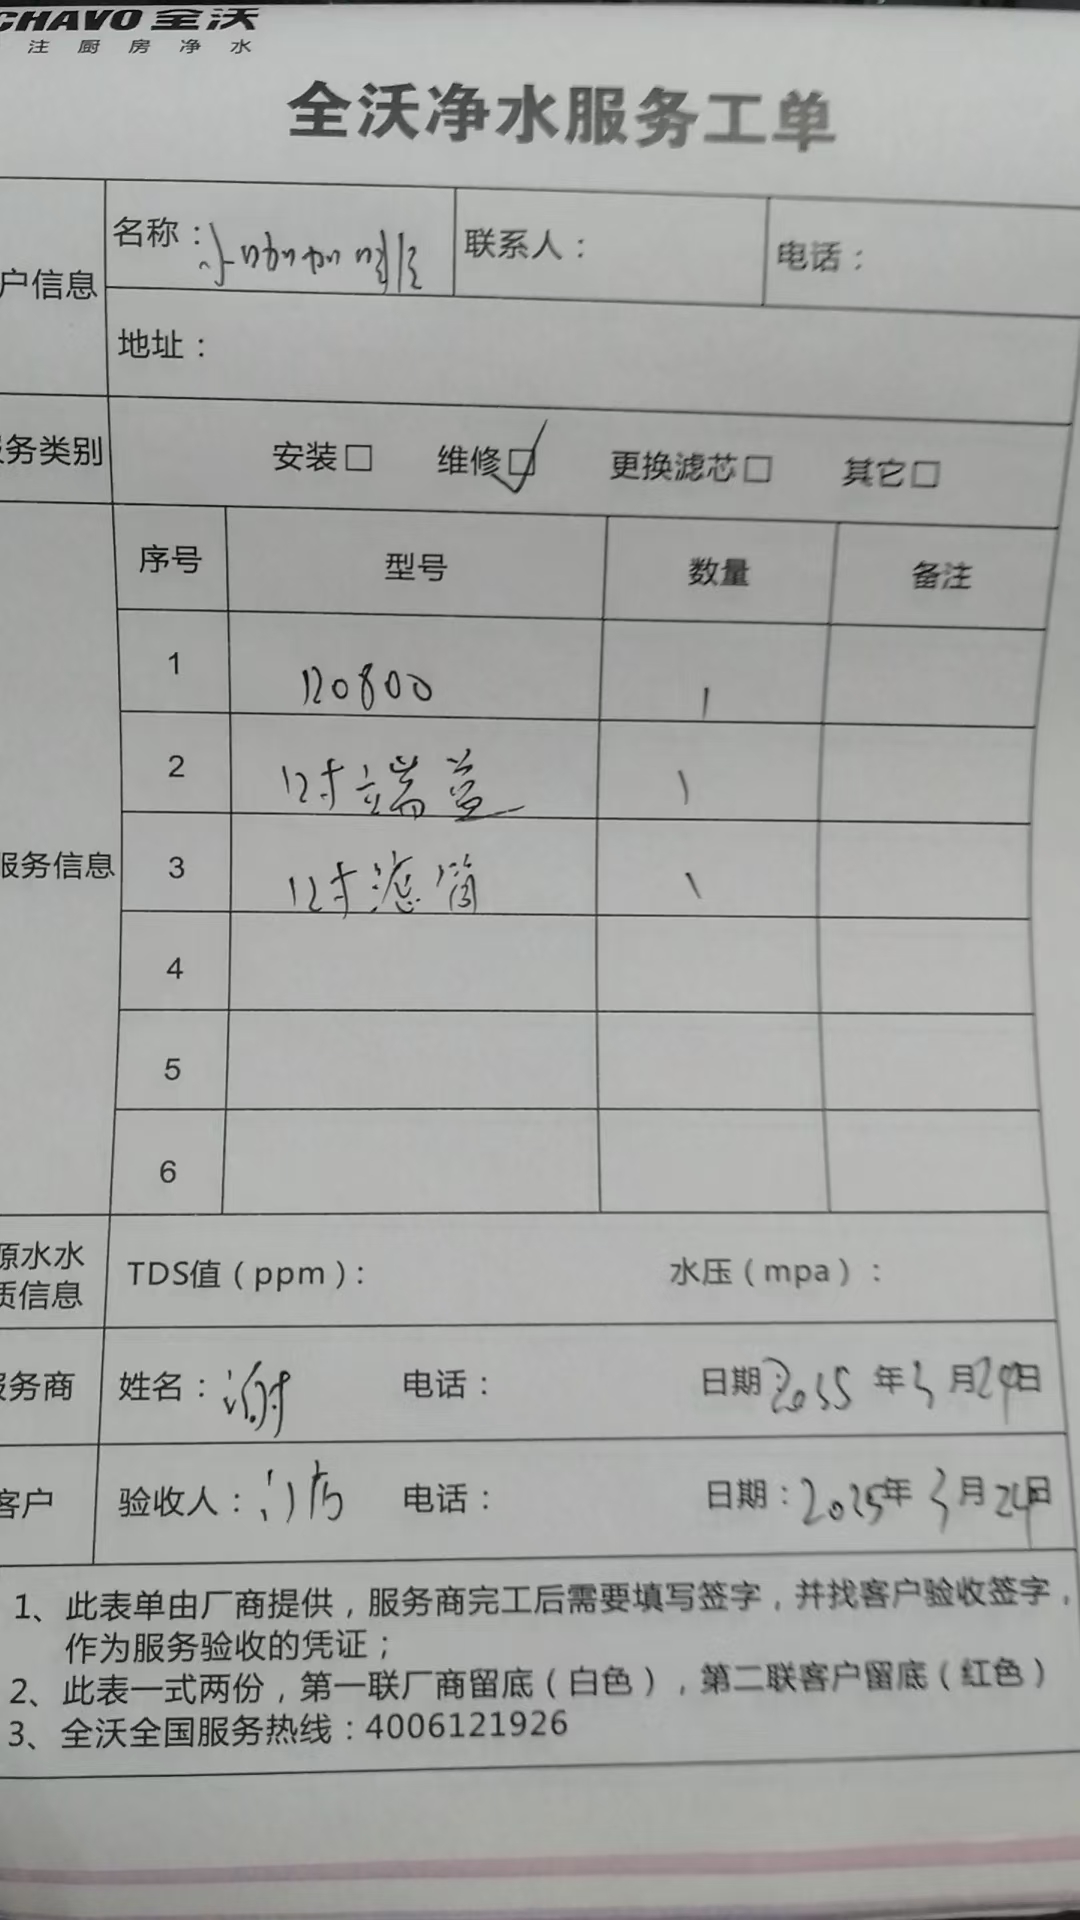 CHAVO 全沃
注厨房净水
全沃净水服务工单
户信息
名称：
联系人：
电话：
地址：
务类别
安装□ 维修☑ 更换滤芯□ 其它□
服务信息
序号 型号 数量 备注
1 120800 1
2 12寸端盖 1
3 12寸滤筒 1
4
5
6
源水水
质信息
TDS值（ppm）： 水压（mpa）：
务商 姓名：谢 电话： 日期 年3月24日
客户 验收人：门店 电话： 日期：2025年3月24日
1、此表单由厂商提供，服务商完工后需要填写签字，并找客户验收签字，
作为服务验收的凭证；
2、此表一式两份，第一联厂商留底（白色），第二联客户留底（红色）
3、全沃全国服务热线：4006121926